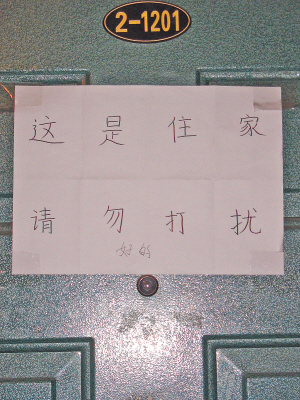 2-1201
这是住家
请勿打扰
好的